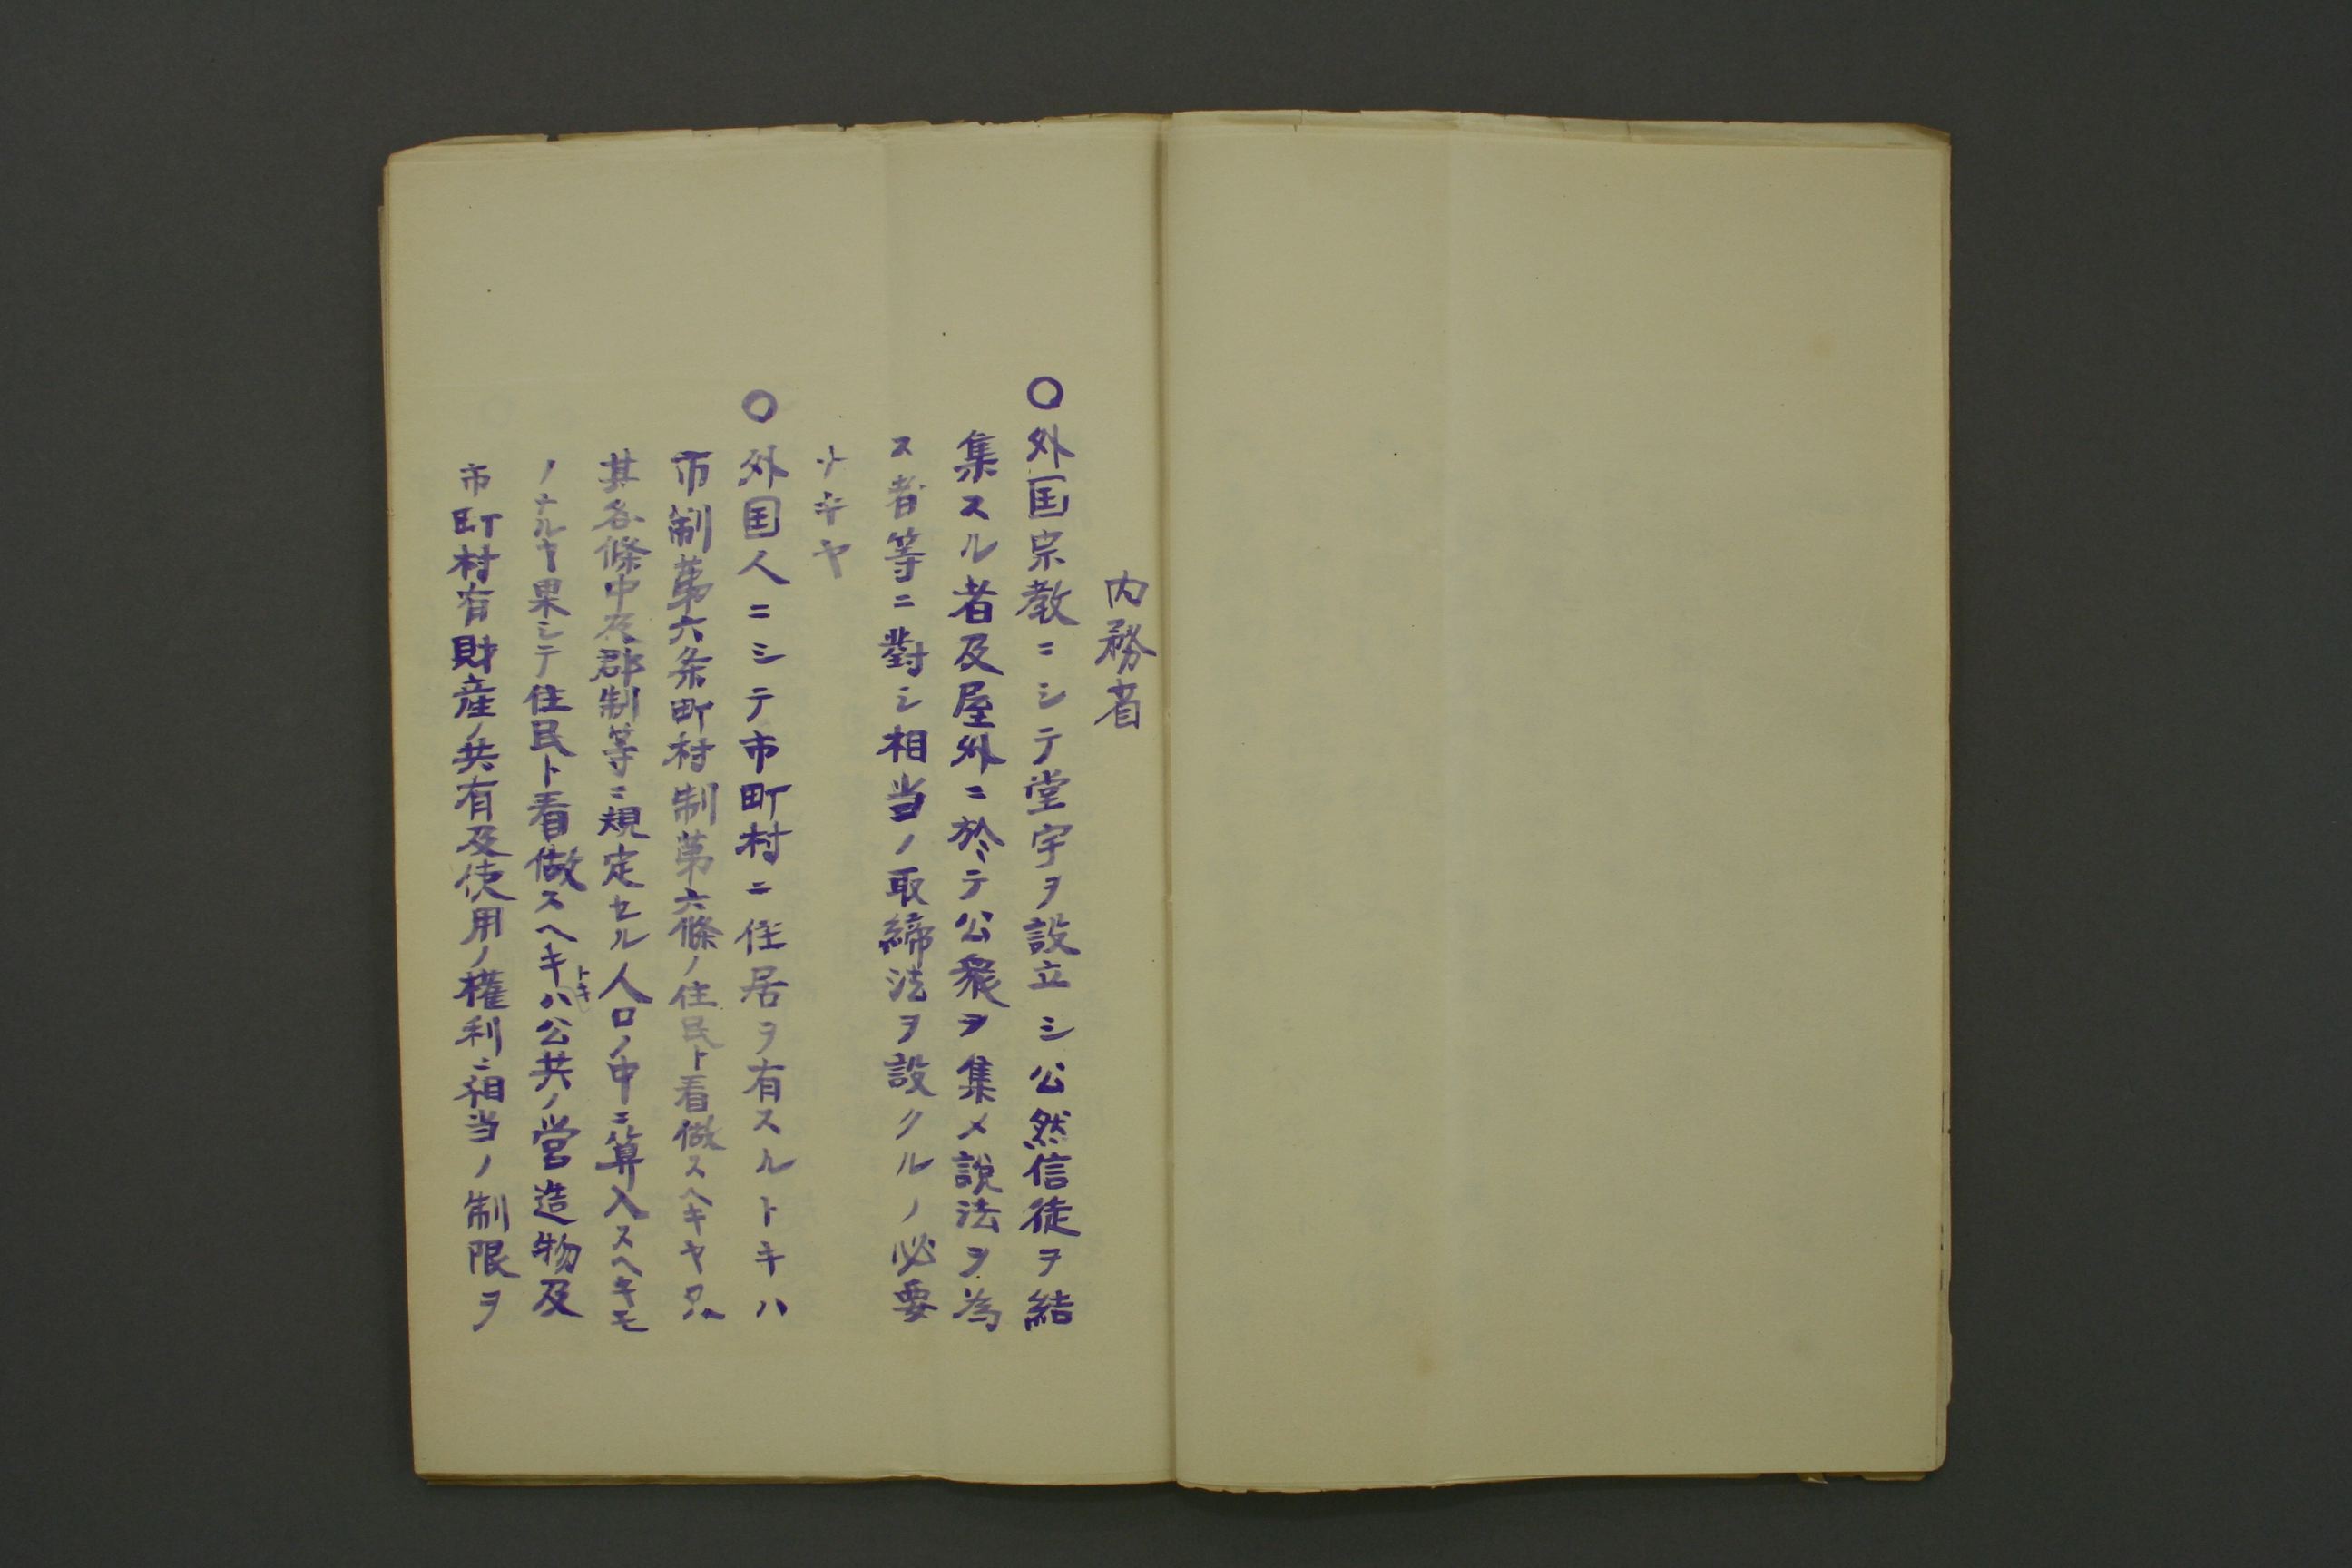 内務省
○外国宗教ニシテ堂宇ヲ設立シ公然信徒ヲ結
集スル者及屋外ニ於テ公衆ヲ集メ説法ヲ為
ス者等ニ對シ相当ノ取締法ヲ設クルノ必要
ナキヤ
○外国人ニシテ市町村ニ住居ヲ有スルトキハ
市制第六条町村制第六條ノ住民ト看做スヘキヤ又ハ
其各條中及郡制等ニ規定セル人口ノ中ニ算入スヘキモ
ノナルヤ果シテ住民ト看做スヘキトキハ公共ノ営造物及
市町村有財産ノ共有及使用ノ權利ニ相当ノ制限ヲ